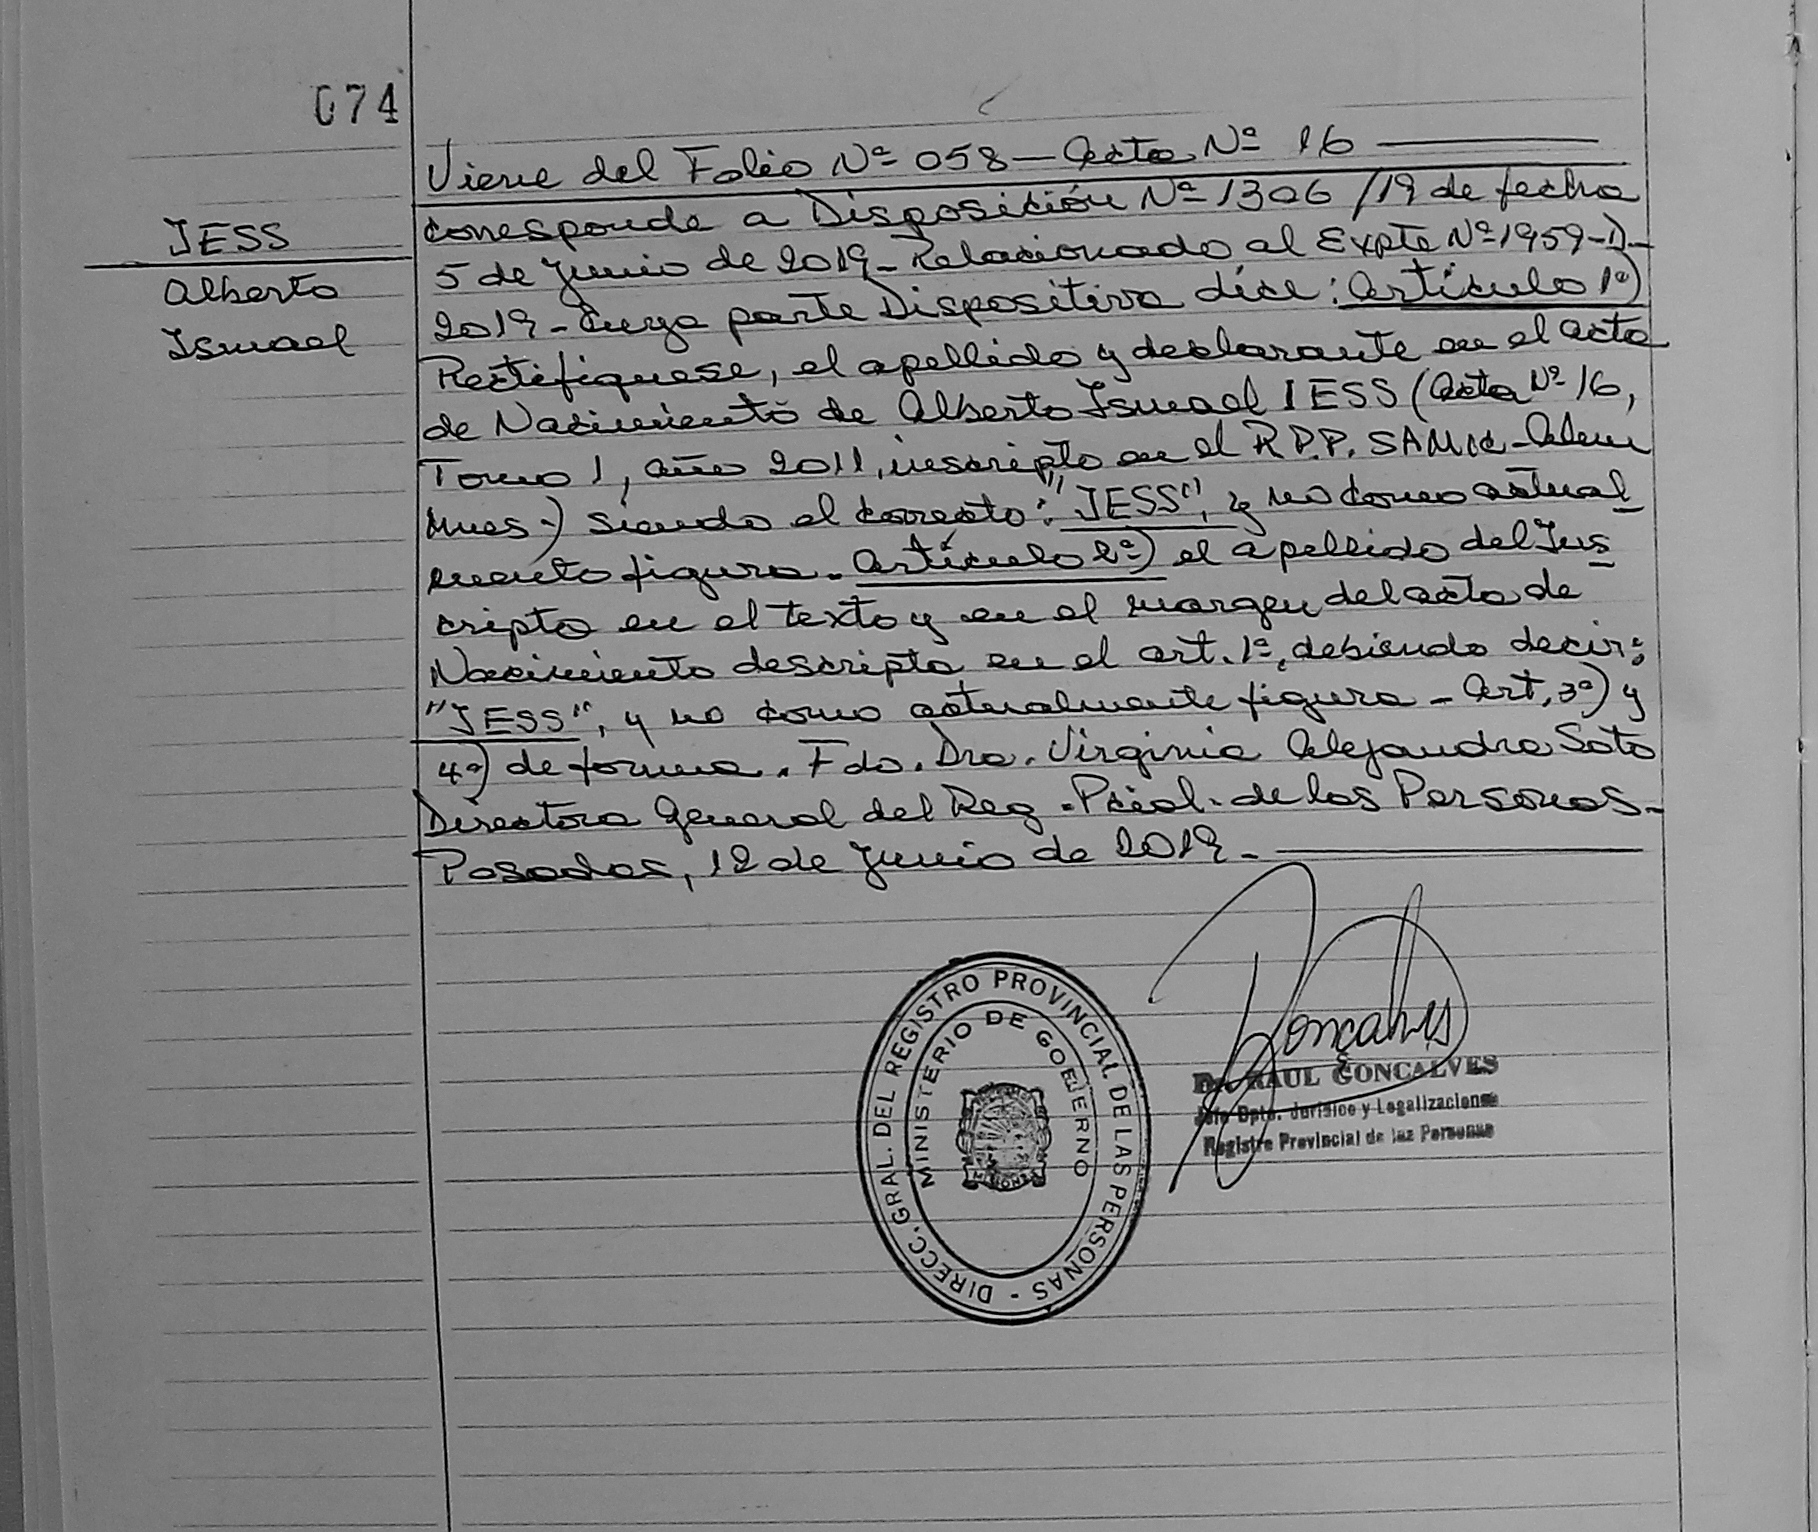 074
JESS
Alberto
Ismael
Viene del Folio Nº 058 — Acta Nº 16
corresponde a Disposición Nº 1306/19 de fecha
5 de Junio de 2019 - Relacionado al Expte Nº 1959-D-
2019 - Cuya parte Dispositiva dice: Artículo 1º)
Rectifiquese, el apellido y declarante en el acta
de Nacimiento de Alberto Ismael IESS (Acta Nº 16,
Tomo 1, año 2011, inscripto en el R.P.P. SAMIC - Alem
Mnes.) siendo el correcto: "JESS", y no como actual
mente figura. Artículo 2º) el apellido del Ins
cripto en el texto y en el margen del acta de
Nacimiento descripta en el art. 1º, debiendo decir:
"JESS", y no como actualmente figura - Art. 3º) y
4º) de forma. Fdo. Dra. Virginia Alejandra Soto
Directora General del Reg. Pcial. de las Personas.
Posadas, 12 de Junio de 2019.
DIRECC. GRAL. DEL REGISTRO PROVINCIAL DE LAS PERSONAS -
MINISTERIO DE GOBIERNO
MISIONES
Gonçalves
Dr. RAUL GONCALVES
Jefe Dpto. Jurídico y Legalizaciones
Registro Provincial de las Personas